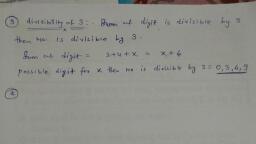 ③ divisibility of 3:- Sum of digit is divisible by 3
then no. is divisible by 3.
Sum of digit = 2+4+x = x+6
possible digit for x then no is divisible by 3 = 0,3,6,9
④